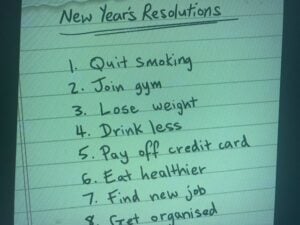 New Year's Resolutions
1. Quit smoking
2. Join gym
3. Lose weight
4. Drink less
5. Pay off credit card
6. Eat healthier
7. Find new job
8. Get organised